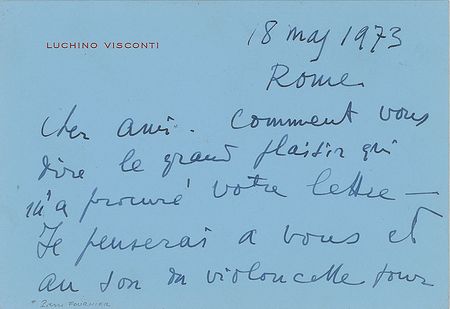 LUCHINO VISCONTI
18 maj 1973
Rome
Cher ami. Comment vous
dire le grand plaisir qui
m'a procuré votre lettre —
Je penserai a vous et
au son du violoncelle pour
* FOURNIER